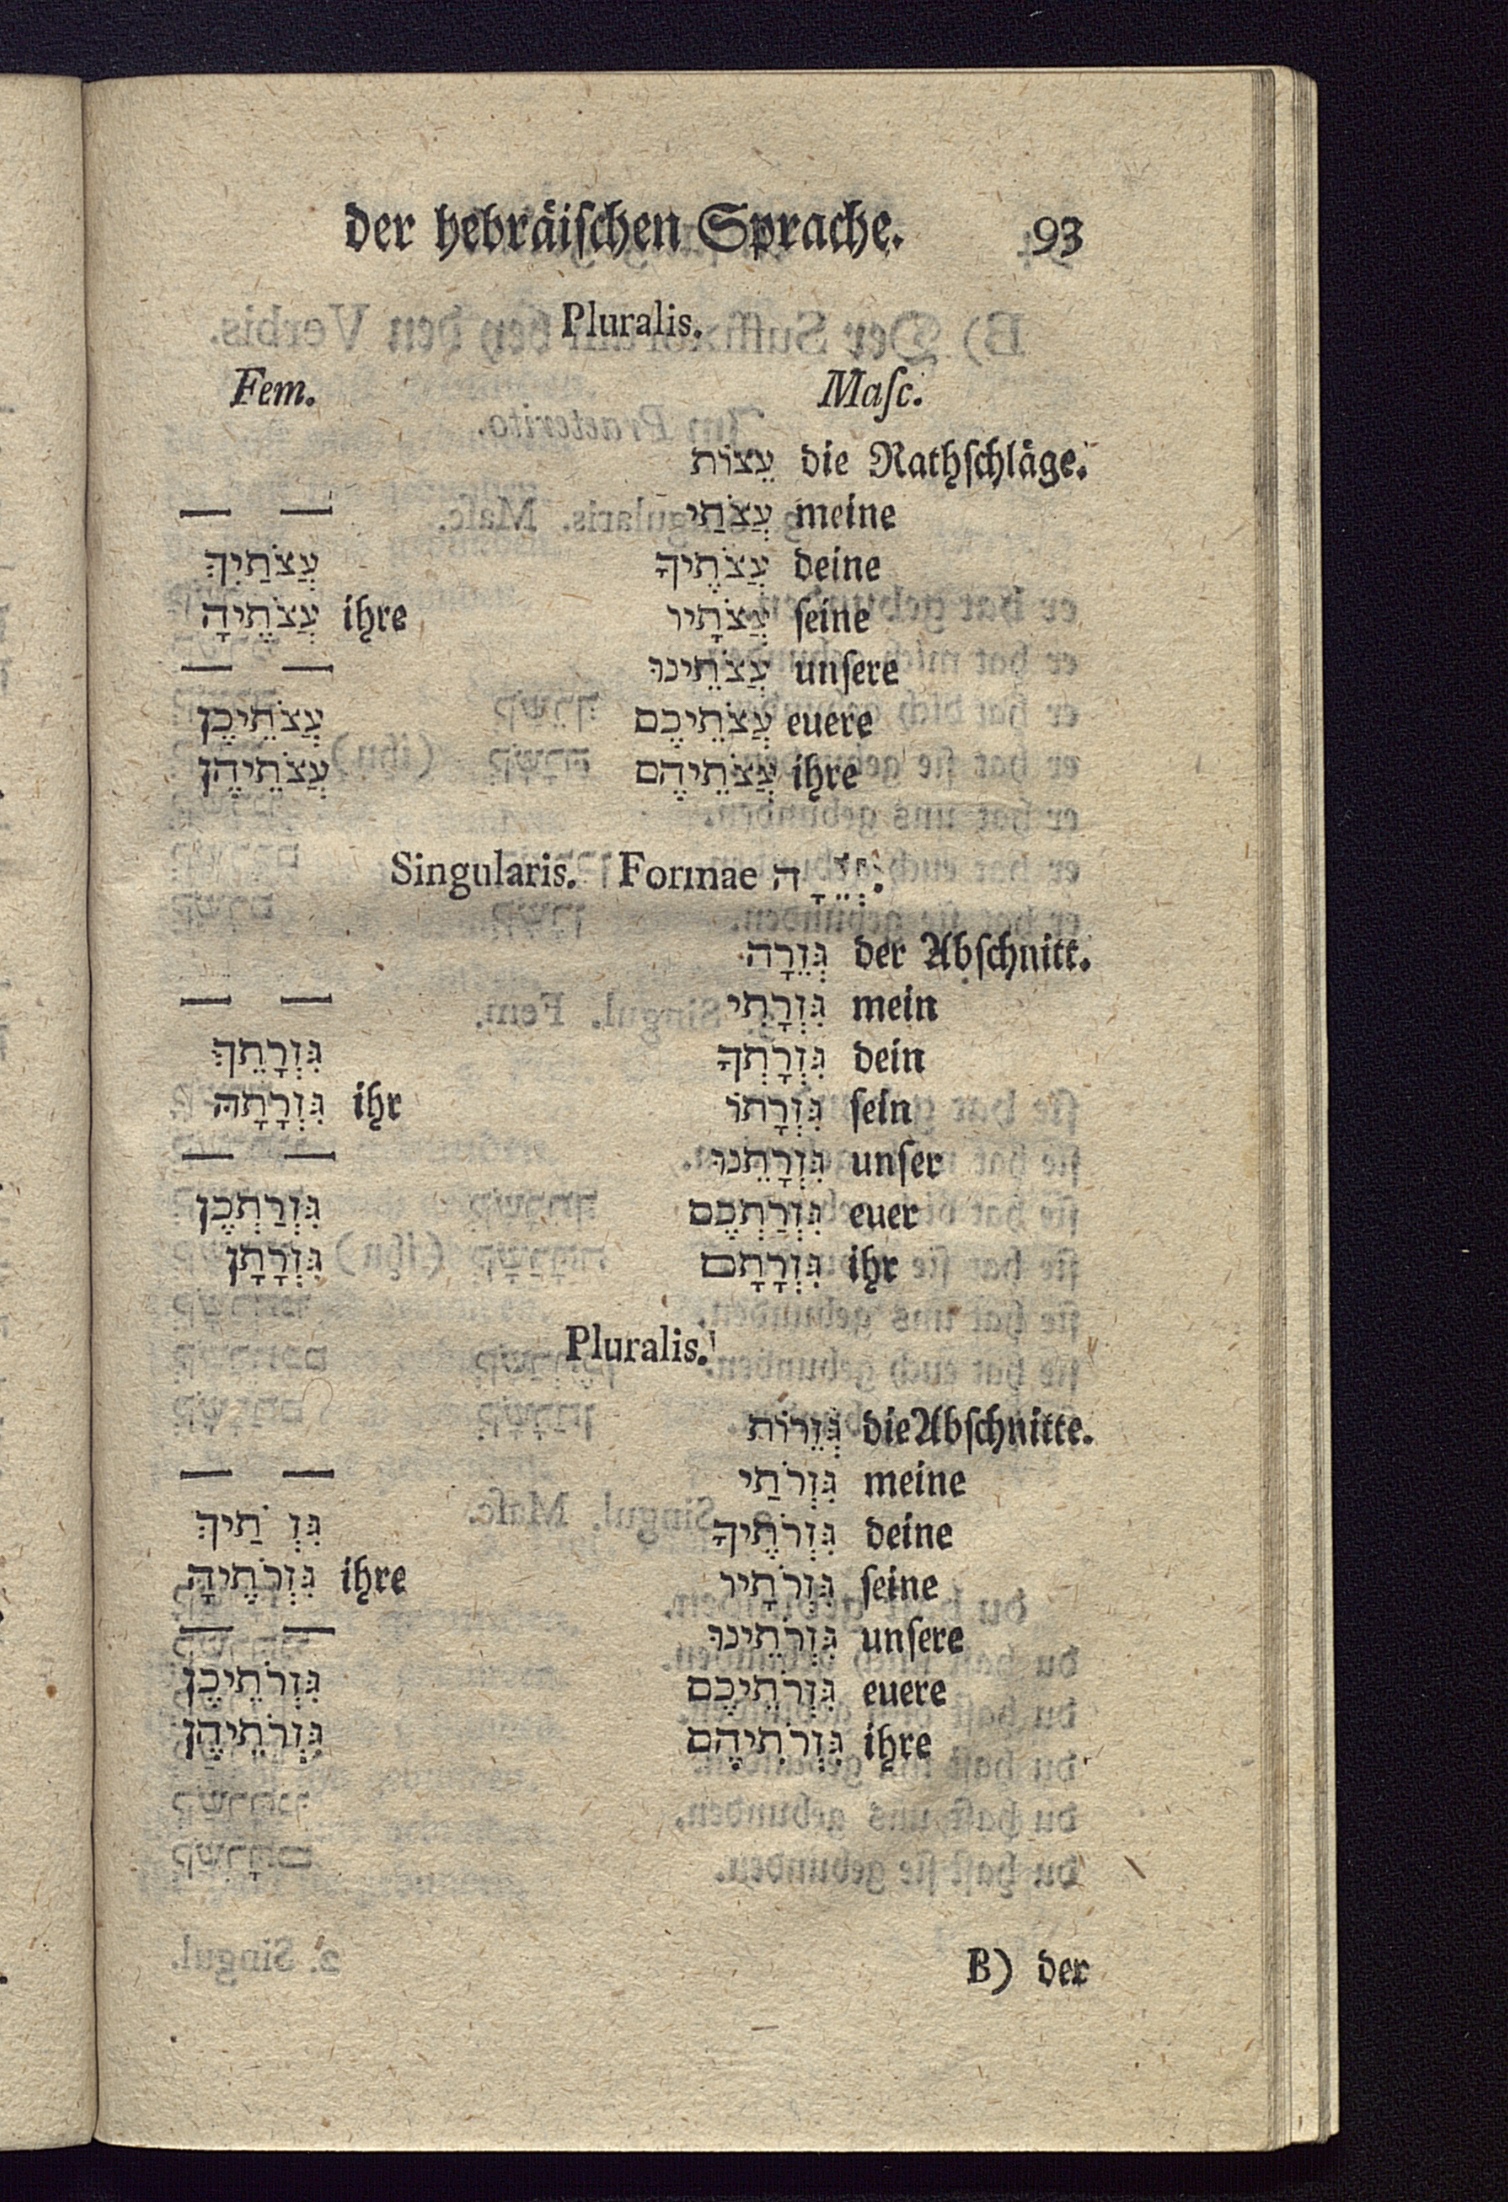 der hebräiſchen Sprache. 93
Pluralis.
Fem. Maſc.
עֵצוֹת die Rathſchläge.
— — עֲצֹתַי meine
עֲצֹתַיִךְ עֲצֹתֶיךָ deine
עֲצֹתֶיהָ ihre עֲצֹתָיו ſeine
— — עֲצֹתֵינוּ unſere
עֲצֹתֵיכֶן עֲצֹתֵיכֶם euere
עֲצֹתֵיהֶן עֲצֹתֵיהֶם ihre
Singularis. Formae
גְּזֵרָה der Abſchnitt.
— — גִּזְרָתִי mein
גִּזְרָתֵךְ גִּזְרָתְךָ dein
גִּזְרָתָהּ ihr גִּזְרָתוֹ ſein
— — גִּזְרָתֵנוּ unſer
גִּזְרַתְכֶן גִּזְרַתְכֶם euer
גִּזְרָתָן גִּזְרָתָם ihr
Pluralis.
גְּזֵרוֹת die Abſchnitte.
— — גִּזְרֹתַי meine
גִּזְ תַיִךְ גִּזְרֹתֶיךָ deine
גִּזְרֹתֶיהָ ihre גִּזְרֹתָיו ſeine
— — גִּזְרֹתֵינוּ unſere
גִּזְרֹתֵיכֶן גִּזְרֹתֵיכֶם euere
גִּזְרֹתֵיהֶן גִּזְרֹתֵיהֶם ihre
B) der